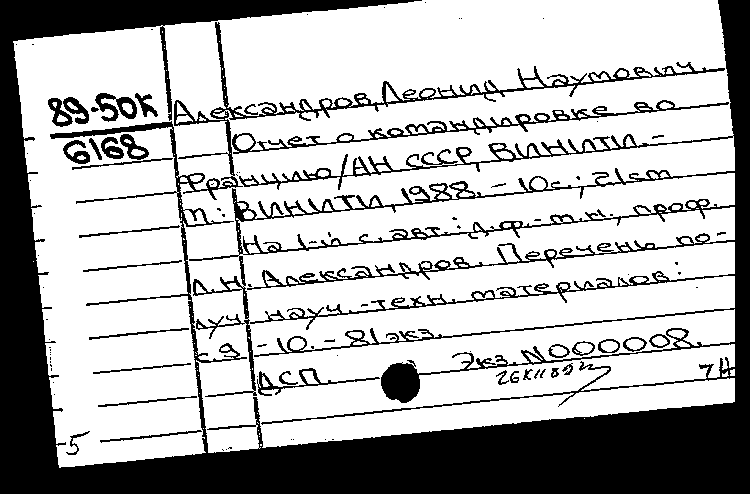 89-50К
6168
Александров, Леонид Наумович.
Отчет о командировке во
Францию/АН СССР, ВИНИТИ. -
М.: ВИНИТИ, 1988. - 10с.; 21см
На 1-й с. авт.: д.ф.-м.н., проф.
Л.Н. Александров. Перечень по-
луч. науч.-техн. материалов:
с.9 - 10. - 81 экз.
Экз. N000008.
ДСП.
7Н
5